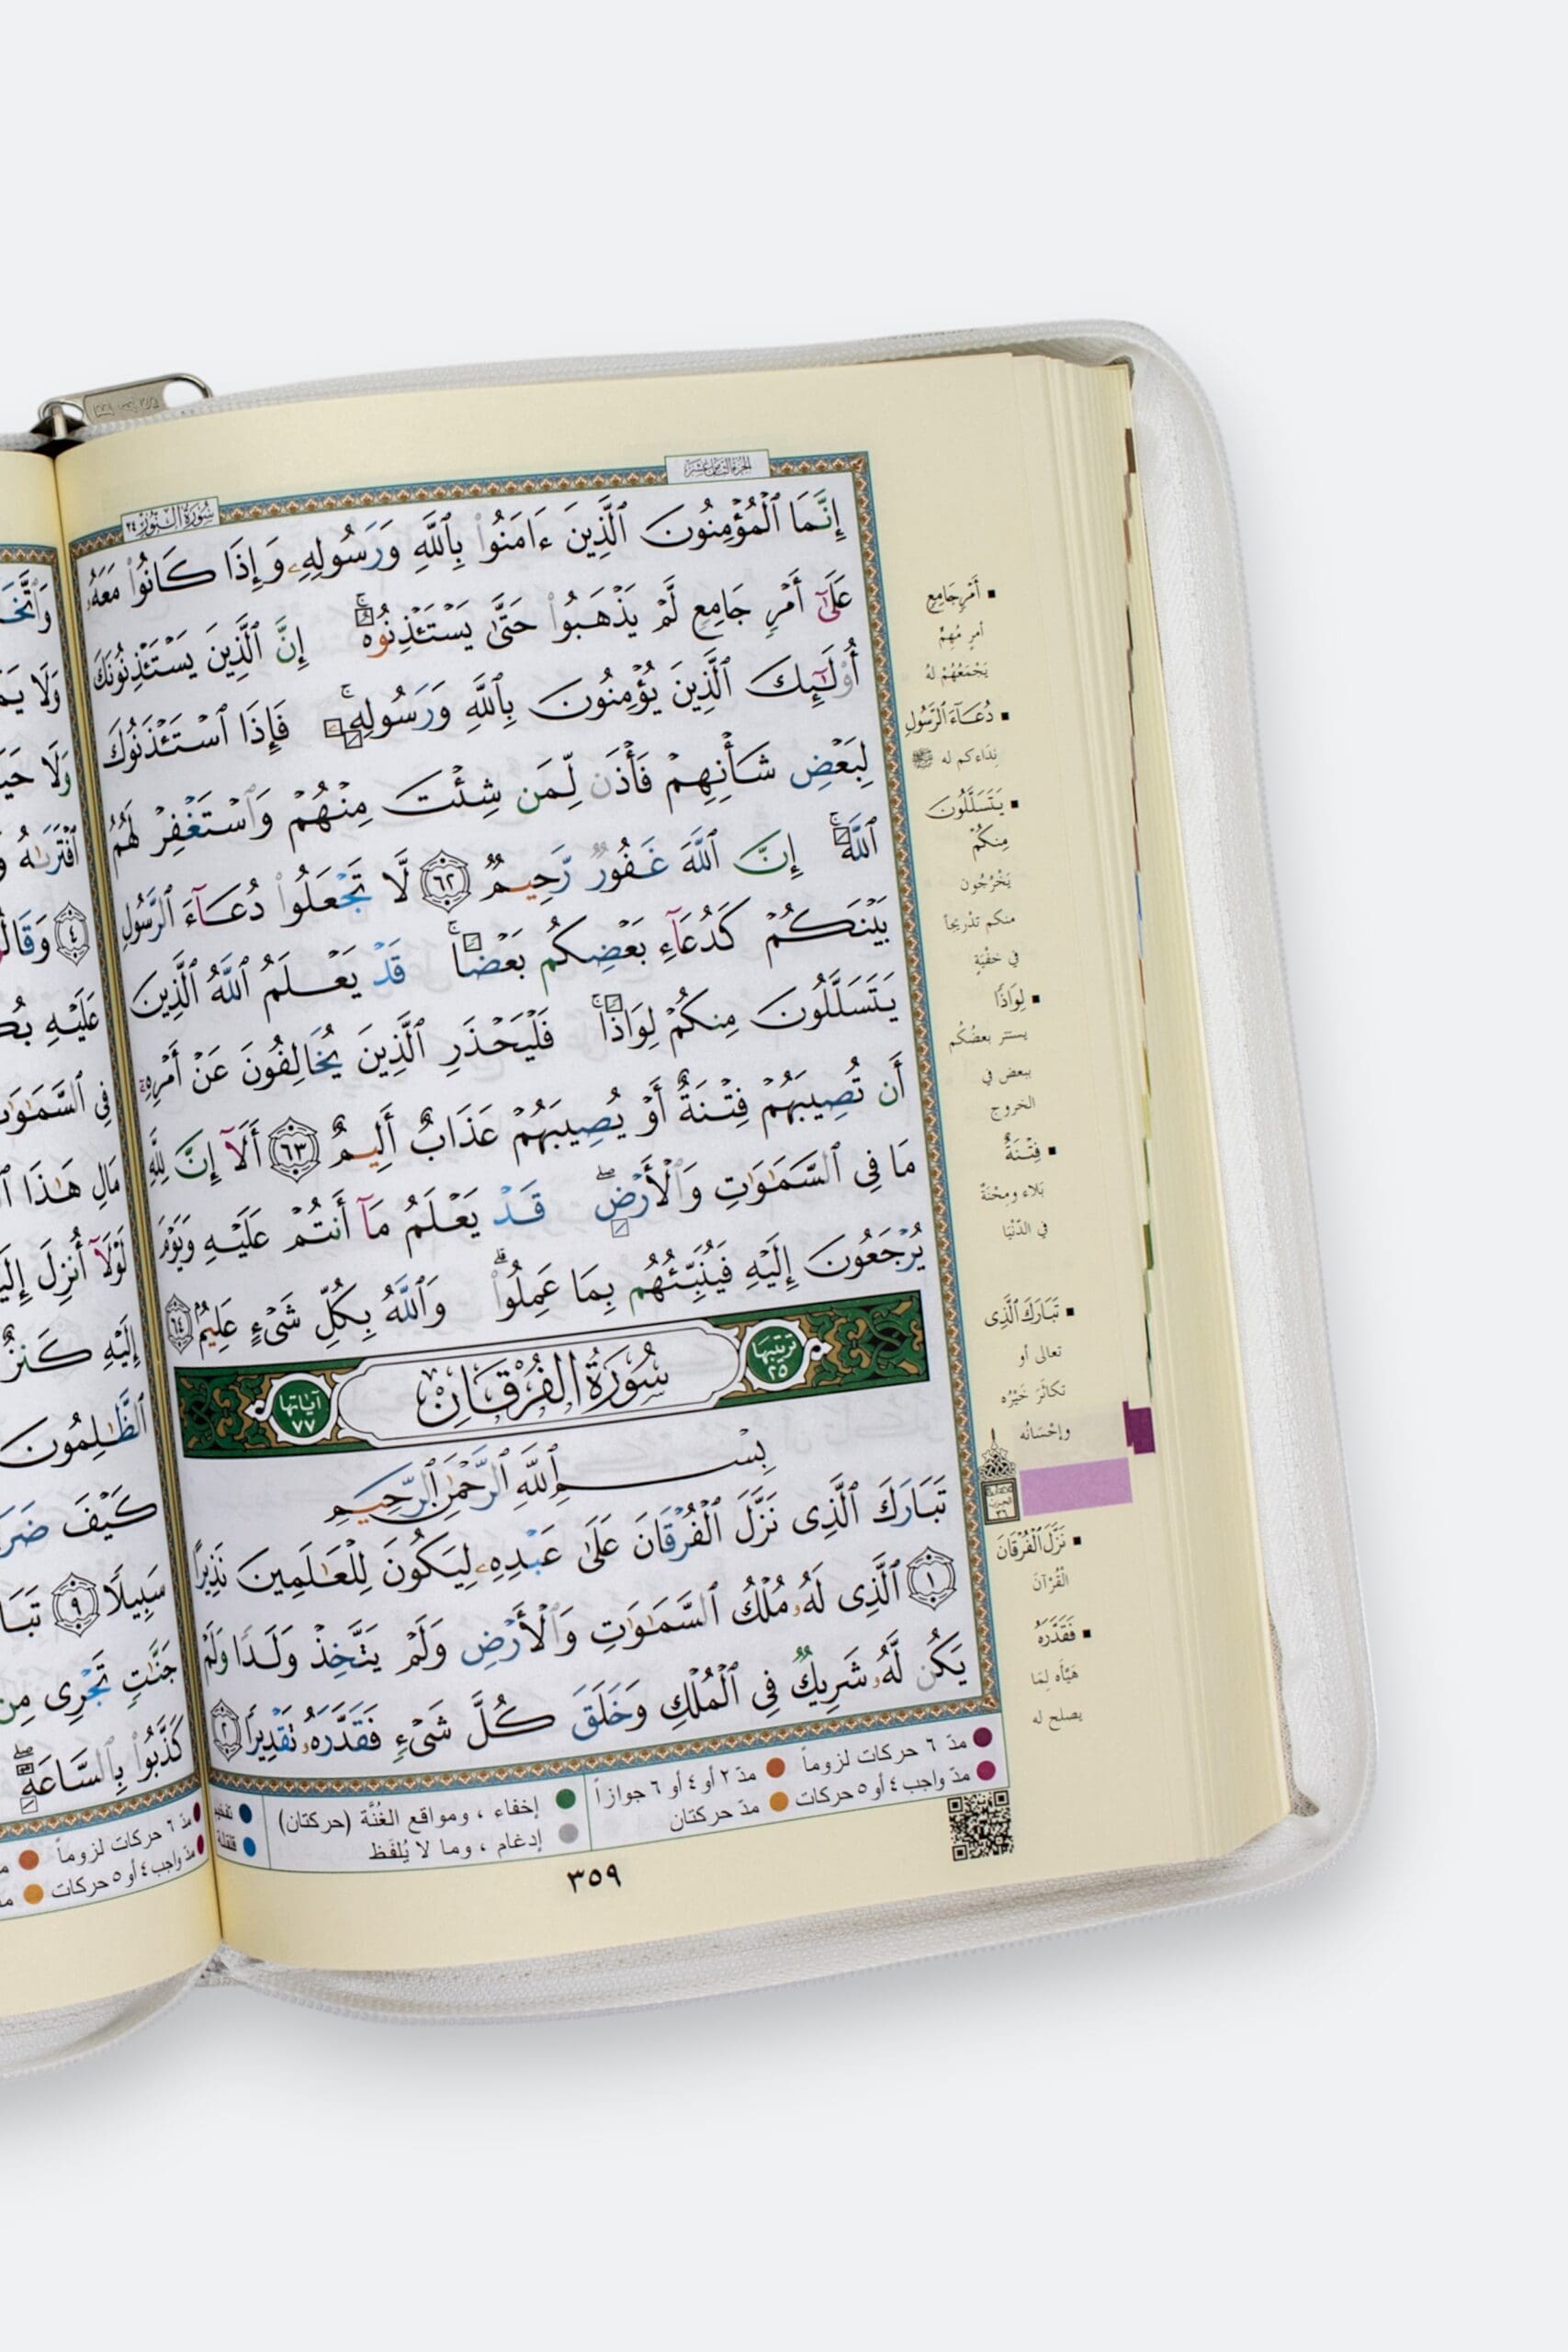 سُورَةُ النُّورِ ٢٤
الجزء الثامن عشر
إِنَّمَا ٱلْمُؤْمِنُونَ ٱلَّذِينَ ءَامَنُوا۟ بِٱللَّهِ وَرَسُولِهِۦ وَإِذَا كَانُوا۟ مَعَهُۥ
عَلَىٰٓ أَمْرٍ جَامِعٍ لَّمْ يَذْهَبُوا۟ حَتَّىٰ يَسْتَـْٔذِنُوهُ ۚ إِنَّ ٱلَّذِينَ يَسْتَـْٔذِنُونَكَ
أُو۟لَـٰٓئِكَ ٱلَّذِينَ يُؤْمِنُونَ بِٱللَّهِ وَرَسُولِهِۦ ۚ فَإِذَا ٱسْتَـْٔذَنُوكَ
لِبَعْضِ شَأْنِهِمْ فَأْذَن لِّمَن شِئْتَ مِنْهُمْ وَٱسْتَغْفِرْ لَهُمُ
ٱللَّهَ ۚ إِنَّ ٱللَّهَ غَفُورٌ رَّحِيمٌ ٦٢ لَّا تَجْعَلُوا۟ دُعَآءَ ٱلرَّسُولِ
بَيْنَكُمْ كَدُعَآءِ بَعْضِكُم بَعْضًا ۚ قَدْ يَعْلَمُ ٱللَّهُ ٱلَّذِينَ
يَتَسَلَّلُونَ مِنكُمْ لِوَاذًا ۚ فَلْيَحْذَرِ ٱلَّذِينَ يُخَالِفُونَ عَنْ أَمْرِهِۦٓ
أَن تُصِيبَهُمْ فِتْنَةٌ أَوْ يُصِيبَهُمْ عَذَابٌ أَلِيمٌ ٦٣ أَلَآ إِنَّ لِلَّهِ
مَا فِى ٱلسَّمَـٰوَٰتِ وَٱلْأَرْضِ ۖ قَدْ يَعْلَمُ مَآ أَنتُمْ عَلَيْهِ وَيَوْمَ
يُرْجَعُونَ إِلَيْهِ فَيُنَبِّئُهُم بِمَا عَمِلُوا۟ ۗ وَٱللَّهُ بِكُلِّ شَىْءٍ عَلِيمٌ ٦٤
ترتيبها ٢٥
سُورَةُ الفُرْقَانِ
آياتها ٧٧
بِسْمِ ٱللَّهِ ٱلرَّحْمَـٰنِ ٱلرَّحِيمِ
تَبَارَكَ ٱلَّذِى نَزَّلَ ٱلْفُرْقَانَ عَلَىٰ عَبْدِهِۦ لِيَكُونَ لِلْعَـٰلَمِينَ نَذِيرًا
١ ٱلَّذِى لَهُۥ مُلْكُ ٱلسَّمَـٰوَٰتِ وَٱلْأَرْضِ وَلَمْ يَتَّخِذْ وَلَدًا وَلَمْ
يَكُن لَّهُۥ شَرِيكٌ فِى ٱلْمُلْكِ وَخَلَقَ كُلَّ شَىْءٍ فَقَدَّرَهُۥ تَقْدِيرًا ٢
أَمْرٍ جَامِعٍ
أمرٍ مُهِمّ
يَجْمَعُهُمْ لهُ
دُعَآءَ ٱلرَّسُولِ
نِدَاءكم له ﷺ
يَتَسَلَّلُونَ
مِنكُمْ
يَخْرُجُون
منكم تدْريجاً
في خفْيَةٍ
لِوَاذًا
يستتر بعضُكُم
ببعض في
الخروج
فِتْنَةٌ
بَلاء ومِحْنَةٌ
في الدّنْيَا
تَبَارَكَ ٱلَّذِى
تعالى أو
تكاثَرَ خَيْرُه
وإحْسَانُه
الحزب
٣٦
نَزَّلَ ٱلْفُرْقَانَ
القُرْآنَ
فَقَدَّرَهُۥ
هَيَّأَه لِمَا
يصلح له
مدّ ٦ حركات لزوماً
مدّ ٢ أو ٤ أو ٦ جوازاً
مدّ واجب ٤ أو ٥ حركات
مدّ حركتان
إخفاء ، ومواقع الغُنَّة (حركتان)
إدغام ، وما لا يُلفَظ
تفخيم
قلقلة
٣٥٩
وَلَا
ٱفْتَرَىٰهُ
٤ وَقَالُ
عَلَيْهِ
فِى ٱلسَّمَـٰوَٰتِ
مَالِ هَـٰذَا
لَوْلَآ أُنزِلَ
إِلَيْهِ كَنزٌ
ٱلظَّـٰلِمُونَ
كَيْفَ
سَبِيلًا ٩
جَنَّـٰتٍ تَجْرِى مِن
كَذَّبُوا۟ بِٱلسَّاعَةِ ۖ
مدّ ٦ حركات لزوماً
مدّ واجب ٤ أو ٥ حركات